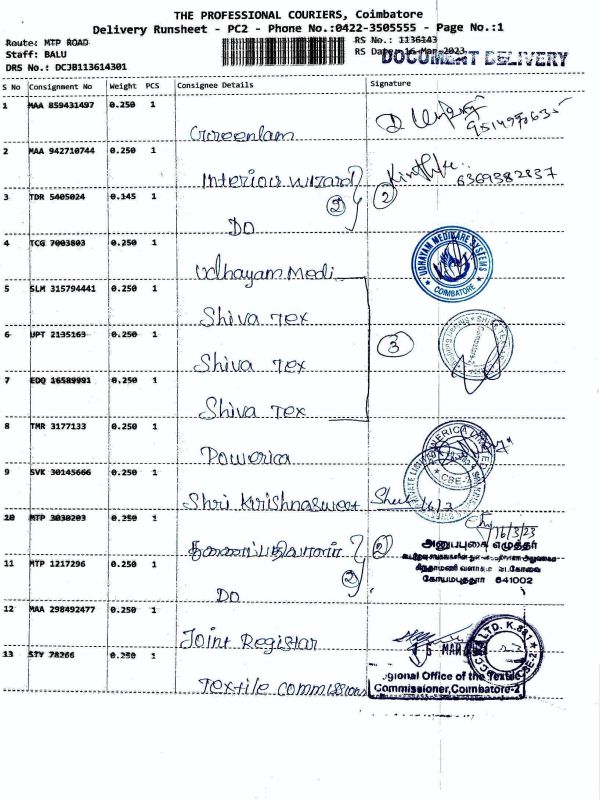 THE PROFESSIONAL COURIERS, Coimbatore
Delivery Runsheet - PC2 - Phone No.:0422-3505555 - Page No.:1
Route: MTP ROAD
Staff: BALU
DRS No.: DCJB113614301
RS No.: 1136143
RS Date: 16-Mar-2023
DOCUMENT DELIVERY
S No Consignment No Weight PCS Consignee Details Signature
1 MAA 859431497 0.250 1
Greenlam
2 MAA 942710744 0.250 1
Interior Wizard
6369382837
3 TDR 5405024 0.145 1
2 2
DO
4 TCG 7003803 0.250 1
Udhayam Medi
UDHAYAM MEDICARE SYSTEMS
COIMBATORE
5 SLM 315794441 0.250 1
Shiva Tex
6 UPT 2135163 0.250 1
3
Shiva Tex
7 EDQ 16589991 0.250 1
Shiva Tex
8 TMR 3177133 0.250 1
Powerica
CBE-
9 SVK 30145666 0.250 1
Shri Krishnasweet
16/3
10 MTP 3038203 0.250 1
16/3/23
2
அனுப்புகை எழுத்தர்
கோயமபுததூர் 641002
11 MTP 1217296 0.250 1
2
DO
12 MAA 298492477 0.250 1
Joint Registar
13 STY 78266 0.250 1
Textile Commissions
Regional Office of the Textile
Commissioner,Coimbatore-2